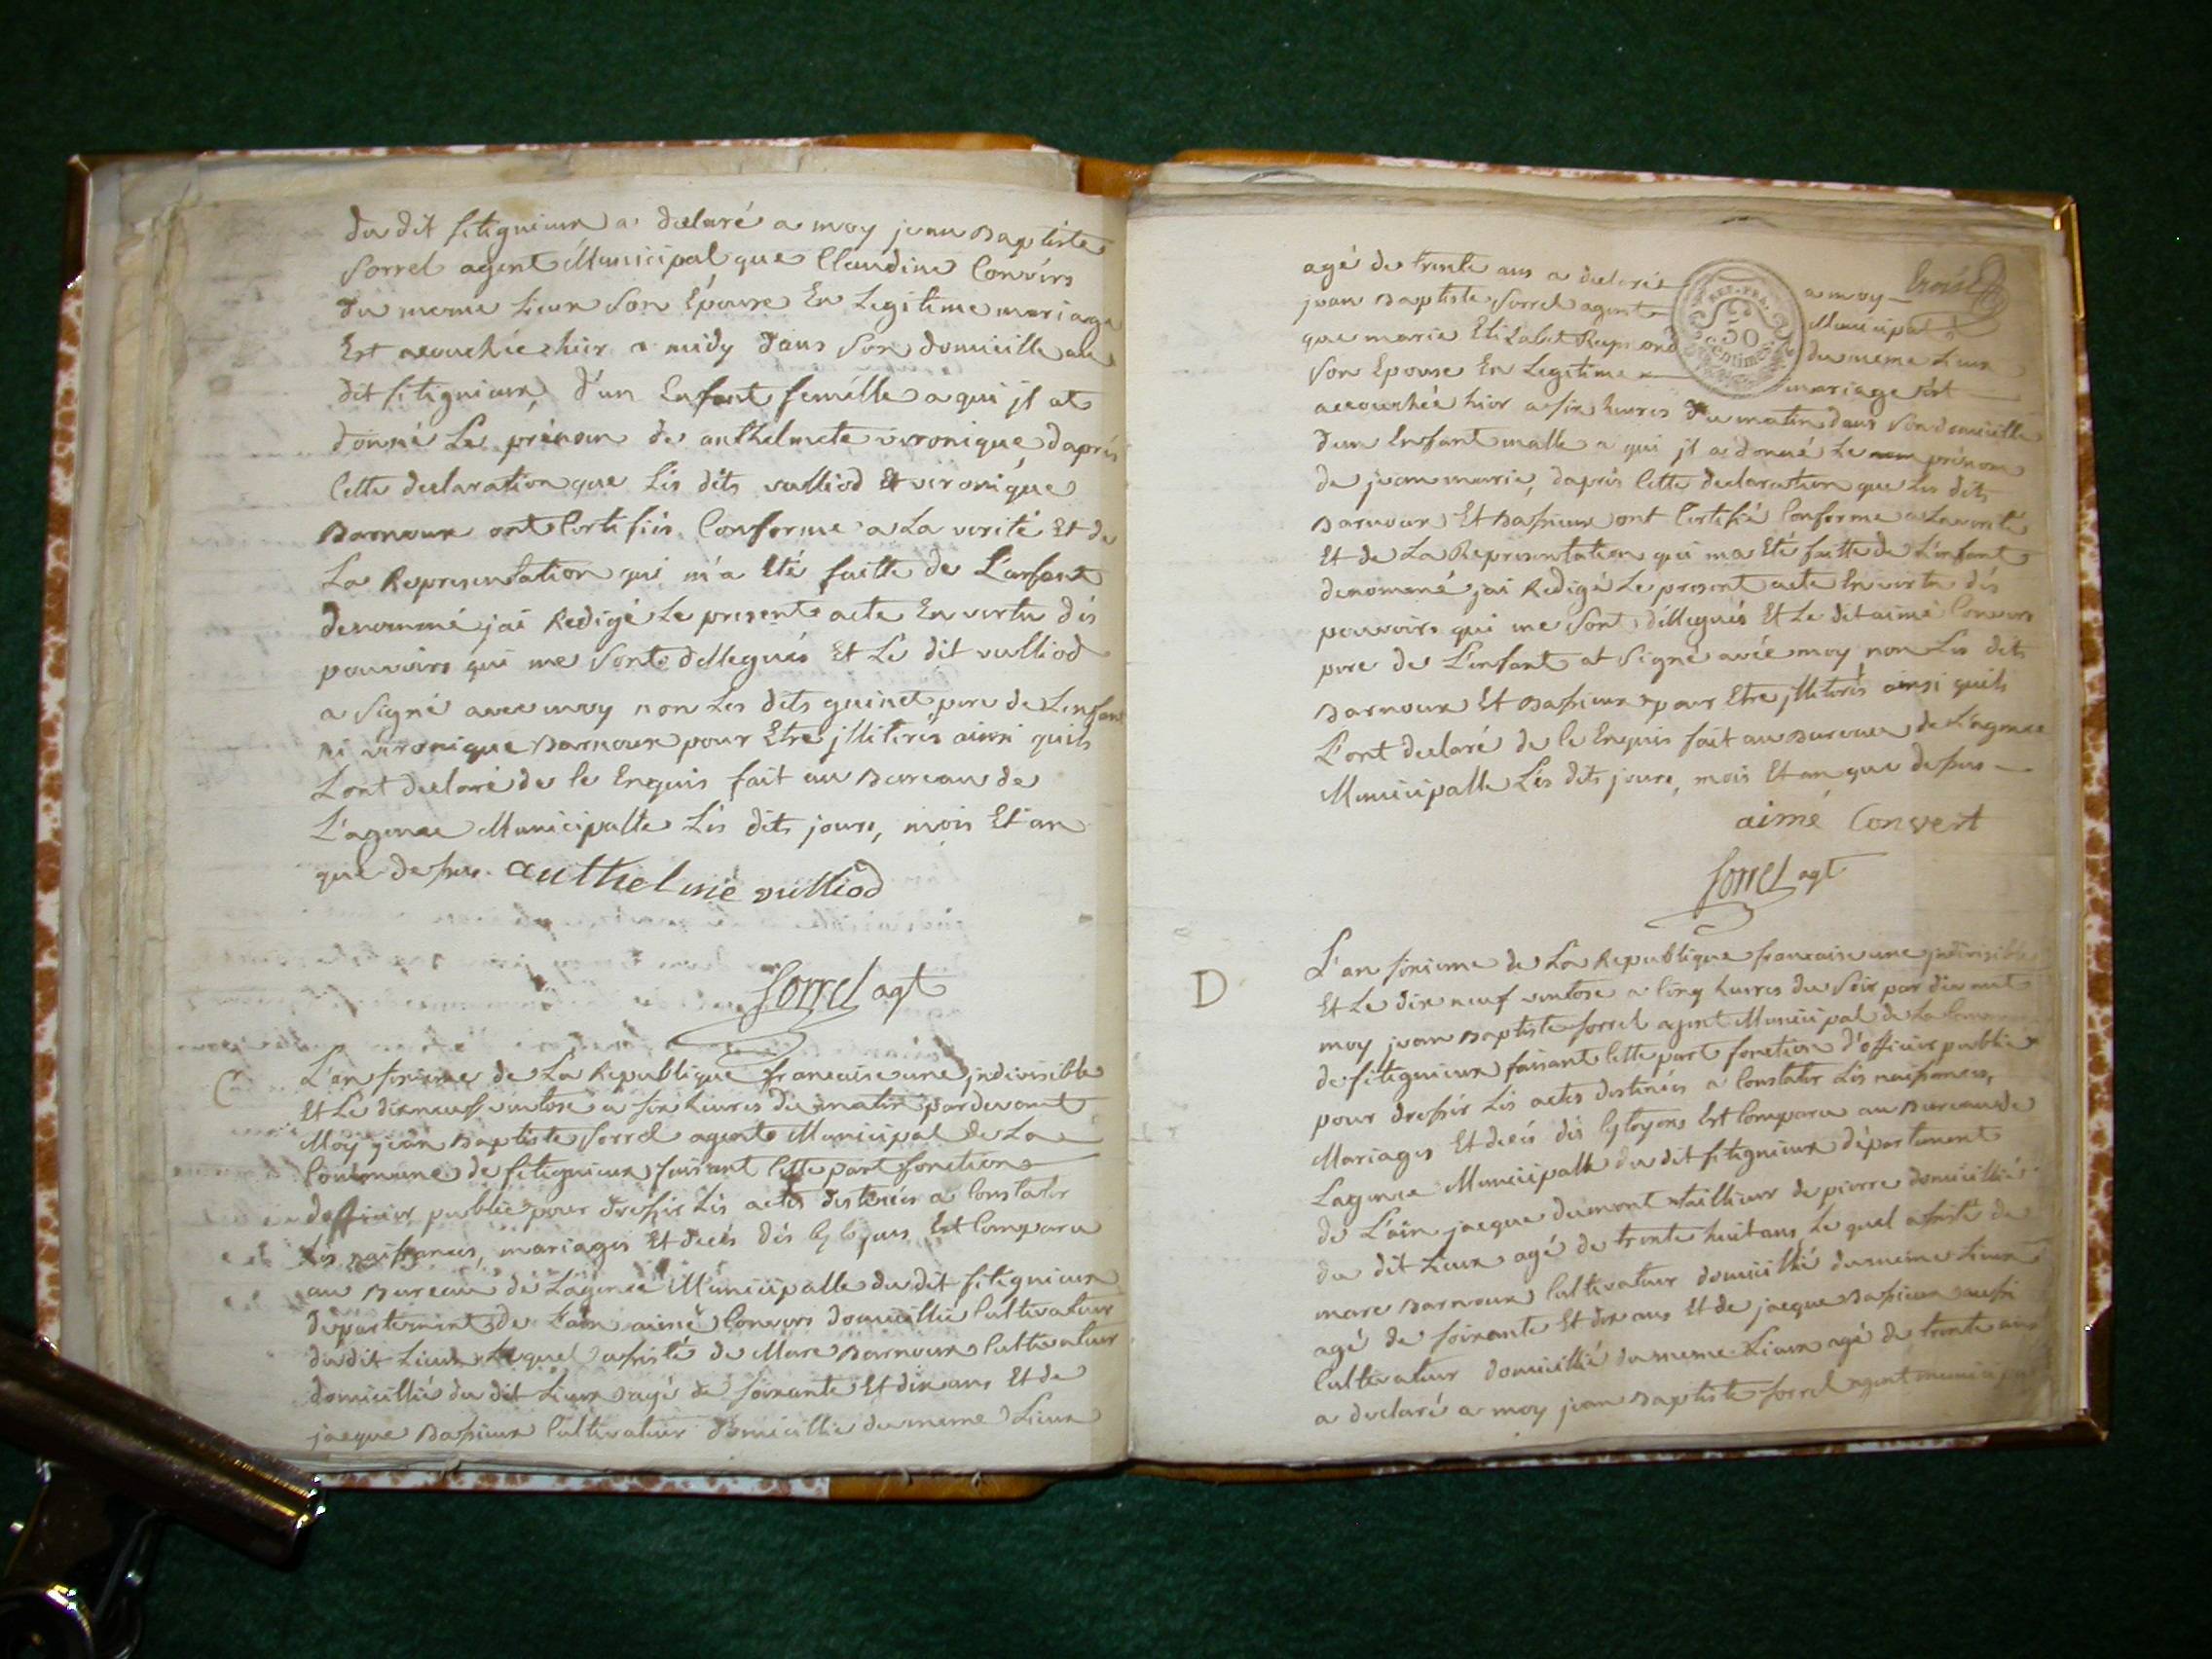 du dit fitignieux a declaré a moy jean Baptiste
Sorrel agent Municipal que Claudine Convers
du meme Lieux Son Epouse En Legitime mariage
Est acouchée hier a midy dans Son domicille au
dit fitignieux, d'un Enfant femélle a qui jl at
donné Le prénom de anthelmete veronique, daprés
Cette declaration que Lés dits vulliod Et veronique
Barnoux ont Certifiés Conforme a La verité Et de
La Representation qui m'a Eté faitte de L'anfant
denommé jai Redigé Le present acte En vertu dés
pouvoirs qui me Sont dellegués Et Le dit vulliod
a Signé avec moy non Les dits guinet pere de Lenfant
ni veronique Barnoux pour Etre jlliterés ainsi quils
Lont declaré de Ce Enquis fait au Bureau de
L'agence Municipalle Lés dits jours, mois Et an
que dessus. anthelme vulliod
Sorrel agt
C L'an sixieme de La Republique francaise une jndivisible
Et Le dixneuf ventose a six heures du matin pardevant
Moy jean Baptiste Sorrel agent Municipal de La
Commune de fitignieux faisant Cette part fonction
dofficier public pour dressér Lés actes destinés a Constater
Lés naissances, mariages Et decés dés Cytoyens Est Comparu
au Bureau de Lagence Municipalle du dit fitignieux
departement de Lain aimé Convers domicillié Cultivateur
du dit Lieux Lequel assisté de Marc Barnoux Cultivateur
domicillié du dit Lieux agé de soixante Et dix ans Et de
jacque Bassieux Cultivateur domicillié du meme Lieux
troisé
agé de trente ans a declaré a moy
jean Baptiste Sorrel agent Municipal
que marie Elizabet Reymond du meme Lieux
Son Epouse En Legitime mariage Est
REP. FRA.
50
centimes
accouchée hier a six heures du matin dans Son domicille
dun Enfant malle a qui jl a donné Le prénom
de jean marie, daprés Cette declaration que Les dits
Barnoux Et Bassieux ont Certifié Conforme a La verité
Et de La Representation qui ma Eté faitte de L'enfant
denommé jai Redigé Le present acte En vertu dés
pouvoirs qui me Sont déllegués Et Le dit aimé Convers
pere de L'enfant at Signé avéc moy non Les dits
Barnoux Et Bassieux pour Etre jlliterés ainsi quils
L'ont declaré de Ce Enquis fait au Bureau de L'agence
Municipalle Lés dits jours, mois Et an que dessus
aimé Convert
Sorrel agt
D L'an sixieme de La Republique francaise une jndivisible
Et Le dix neuf ventose a Cinq heures du Soir par devant
moy jean Baptiste Sorrel agent Municipal de La Commune
de fitignieux faisant Cette part fonction d'officier public
pour dressér Lés actes destinés a Constater Lés naissances,
Mariages Et decés dés Cytoyens Est Comparu au Bureau de
Lagence Municipalle du dit fitignieux département
de L'ain jacque dumont taillieur de pierre domicillié
du dit Lieux agé de trente huit ans, Le quel assisté de
marc Barnoux Cultivateur domicillié du meme Lieux
agé de soixante Et dix ans Et de jacque Bassieux aussi
Cultivateur domicillié du meme Lieux agé de trente ans
a declaré a moy jean Baptiste Sorrel agent municipal